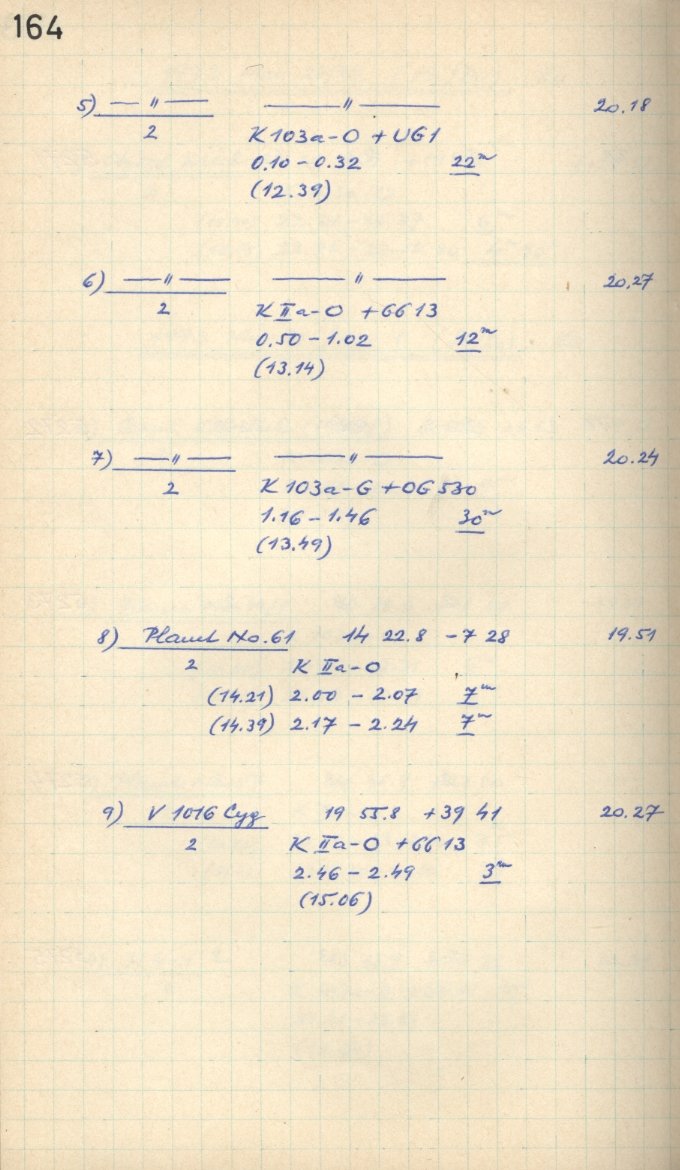 164
5) — 〃 — — 〃 — 20.18
2 K 103a-O + UG1
0.10 - 0.32 22m
(12.39)
6) — 〃 — — 〃 — 20.27
2 K IIa-O + GG 13
0.50 - 1.02 12m
(13.14)
7) — 〃 — — 〃 — 20.24
2 K 103a-G + OG 530
1.16 - 1.46 30m
(13.49)
8) Planet No. 61 14 22.8 -7 28 19.51
2 K IIa-O
(14.21) 2.00 - 2.07 7m
(14.39) 2.17 - 2.24 7m
9) V 1016 Cyg 19 55.8 +39 41 20.27
2 K IIa-O + GG 13
2.46 - 2.49 3m
(15.06)